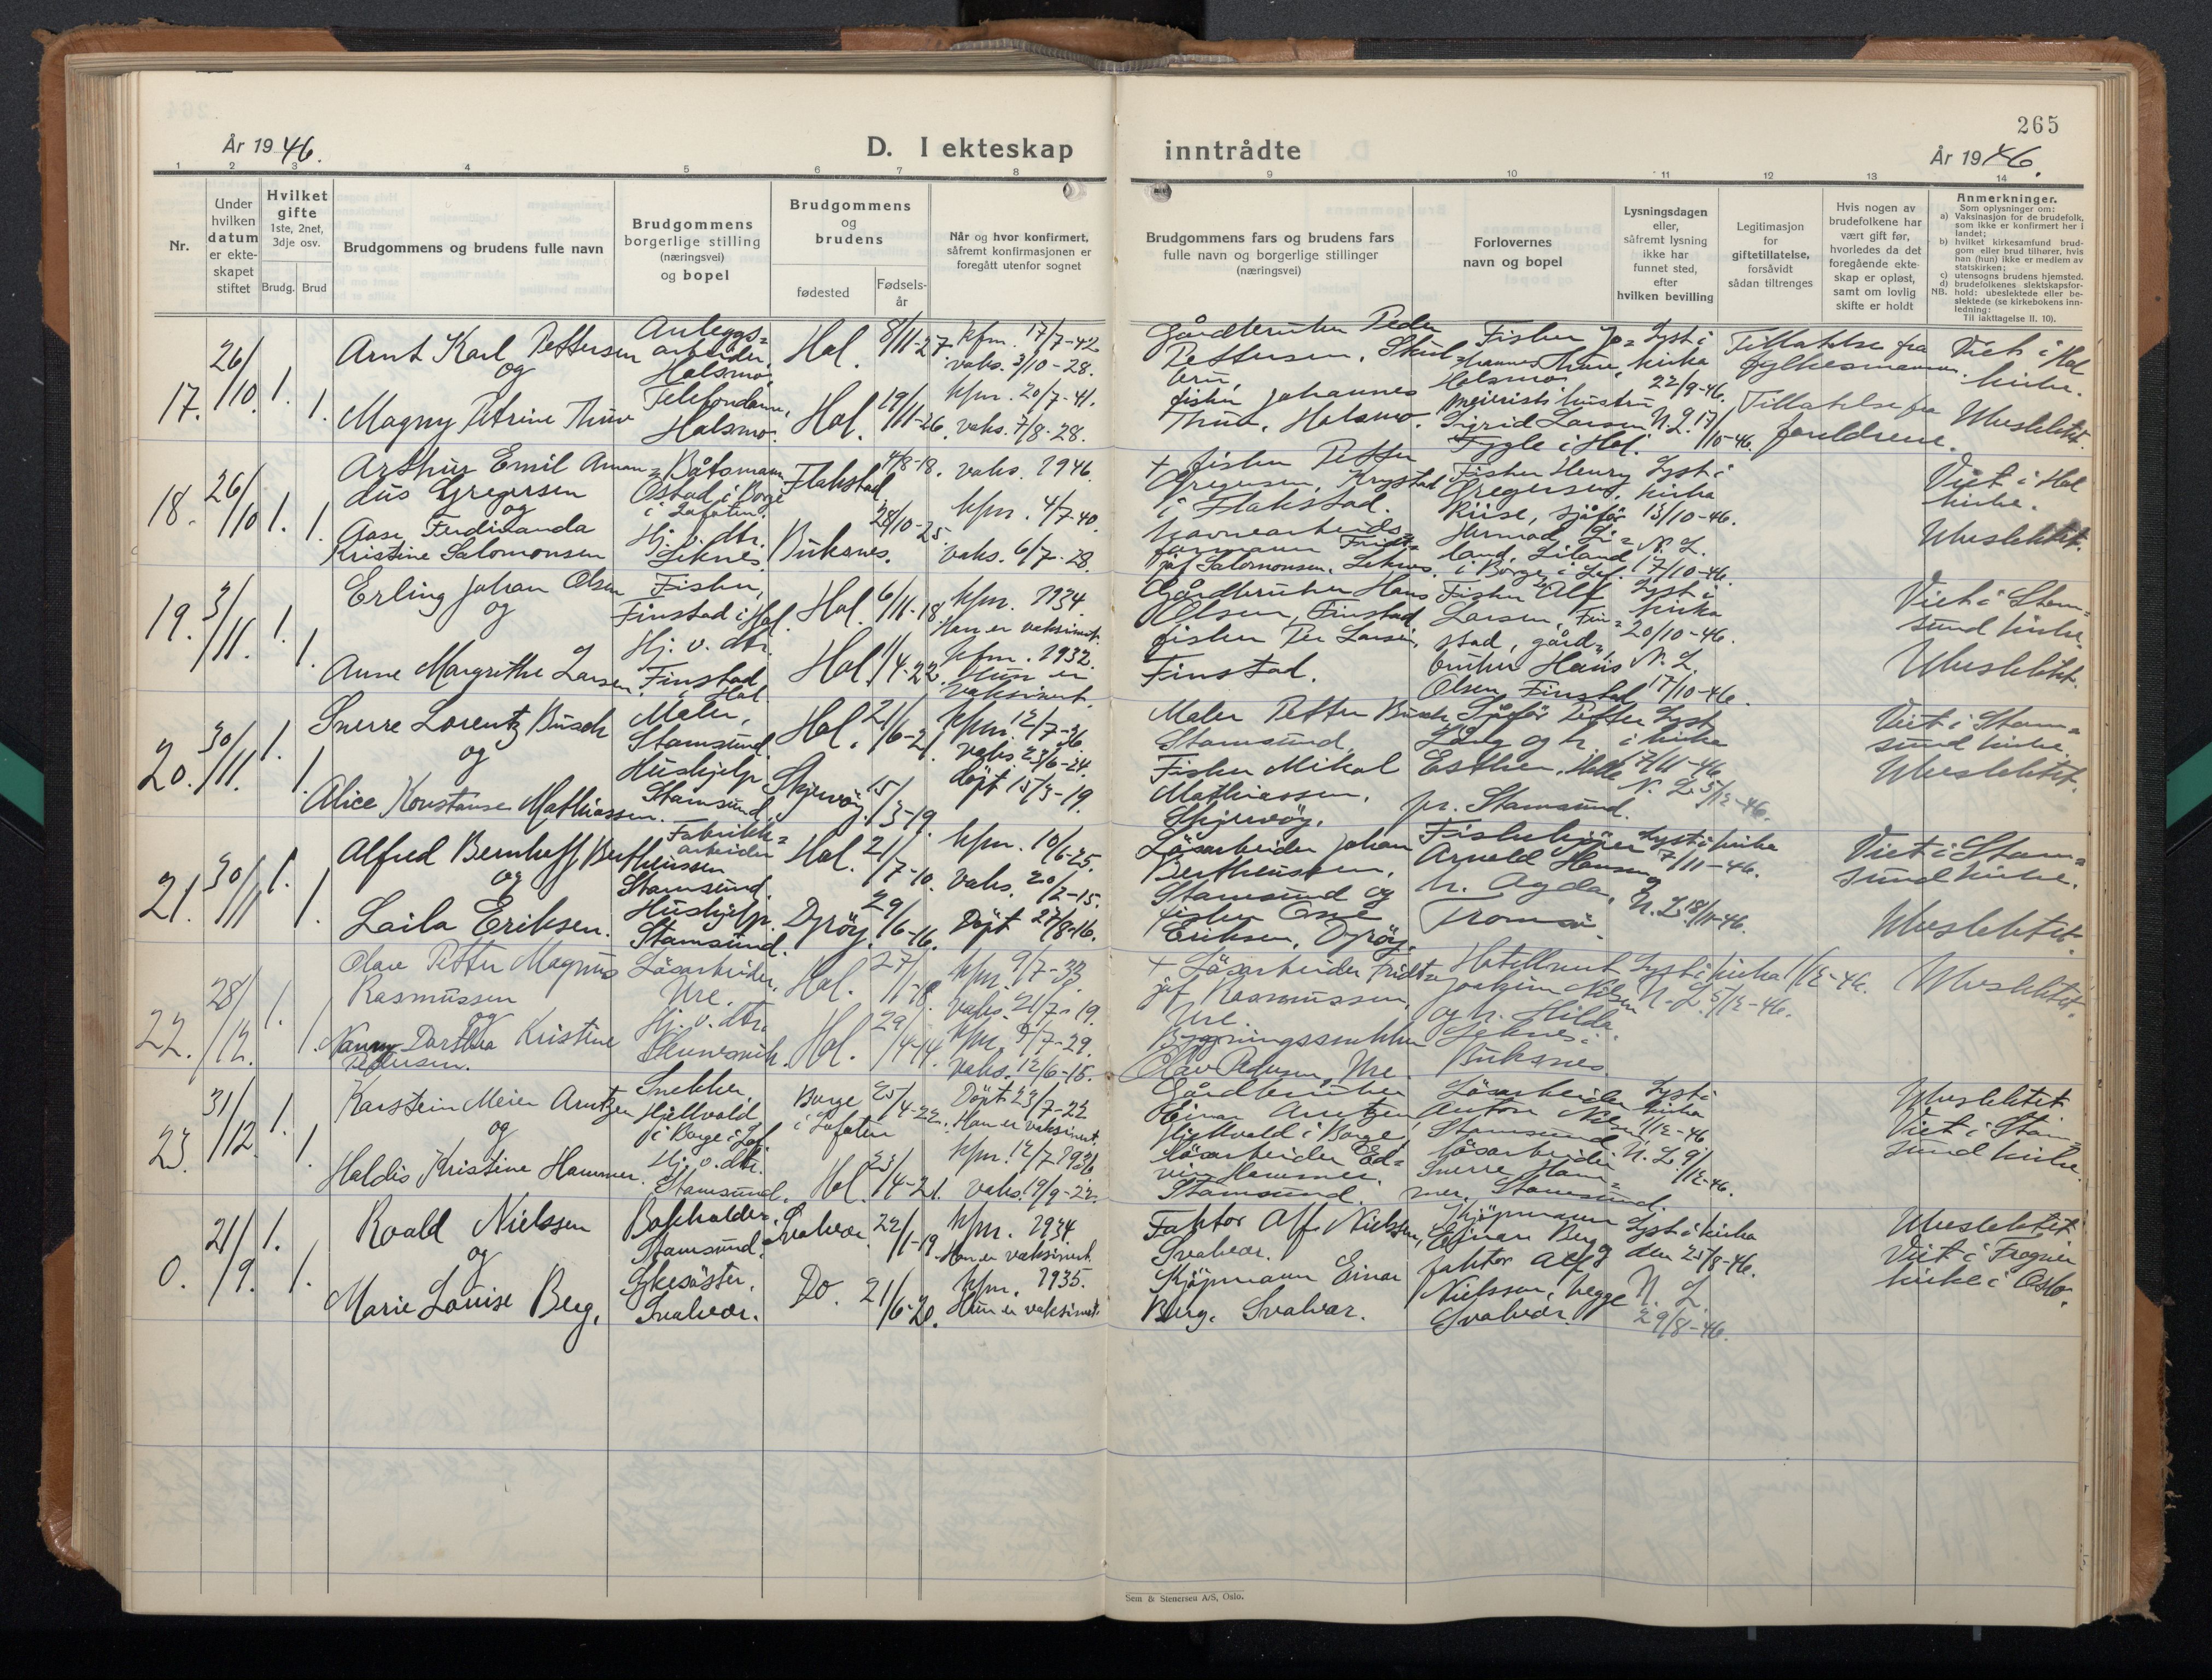 265
År 1946.
D. I ekteskap
inntrådte
År 1946.
1 2 3 4 5 6 7 8
9 10 11 12 13 14
Nr.
Under
hvilken
datum
er ekte-
skapet
stiftet
Hvilket
gifte
1ste, 2net,
3dje osv.
Brudg. Brud
Brudgommens og brudens fulle navn
Brudgommens
borgerlige stilling
(næringsvei)
og bopel
Brudgommens
og
brudens
fødested
Fødsels-
år
Når og hvor konfirmert,
såfremt konfirmasjonen er
foregått utenfor sognet
Brudgommens fars og brudens fars
fulle navn og borgerlige stillinger
(næringsvei)
Forlovernes
navn og bopel
Lysningsdagen
eller,
såfremt lysning
ikke har
funnet sted,
efter
hvilken bevilling
Legitimasjon
for
giftetillatelse,
forsåvidt
sådan tiltrenges
Hvis nogen av
brudefolkene har
vært gift før,
hvorledes da det
foregående ekte-
skap er opløst,
samt om lovlig
skifte er holdt
Anmerkninger.
Som oplysninger om:
a) Vaksinasjon for de brudefolk,
som ikke er konfirmert her i
landet;
b) hvilket kirkesamfund brud-
gom eller brud tilhører, hvis
han (hun) ikke er medlem av
statskirken;
c) utensogns brudens hjemsted.
d) brudefolkenes slektskapsfor-
NB. hold: ubeslektede eller be-
slektede (se kirkebokens inn-
ledning:
Til iakttagelse II. 10).
17.
26/10.
1.
1.
Arnt Karl Pettersen
og
Magny Petrine Thuv
Anleggs=
arbeider,
Holsmo.
Telefondame,
Holsmo.
Hol. 8/11-27.
Hol. 19/11-26.
kfm. 17/7-42
vaks. 3/10-28.
kfm. 20/7-41.
vaks. 7/8-28.
Gårdbruker Peder
Pettersen,
fisker Johannes
Thuv, Holsmo.
Fisker Jo=
hannes Thuv,
Holsmo
meierist
Sigrid Larsen
Fygle i Hol.
Lyst i
kirka
22/9-46.
N.L. 17/10-46.
Tillatelse fra
fylkesmannen.
Tillatelse fra
foreldrene.
Viet i Hol
kirke.
Ubeslektet.
18.
26/10
1.
1.
Arthur Emil Aman=
dus Gregersen
og
Aase Ferdinanda
Kristine Salomonsen
Båtsmann
Østad i Borge
i Lofoten.
Hj. v. dtr.
Leknes.
Flakstad 4/8-18.
Buksnes. 28/10-25
vaks. 1946
kfm. 4/7-40.
vaks. 6/7-28.
+ fisker Petter
Gregersen, Krystad
i Flakstad.
havnearbeids=
formann Fridt=
jof Salomonsen. Leknes.
Fisker Henry
Gregersen,
Riise, sjåfør
Hermod Li=
land, Liland
i Borge i Lof.
Lyst i
kirka
13/10-46.
N. L.
17/10-46.
Viet i Hol
kirke.
Ubeslektet.
19.
3/11.
1.
1.
Erling Johan Olsen
og
Anne Margrethe Larsen.
Fisker,
Finstad i Hol.
Hj. v. dtr.
Finstad
i Hol
Hol. 6/11-18.
Hol. 1/4-22.
kfm. 1934
Han er vaksinert.
kfm. 1932.
Hun er
vaksinert.
Gårdbruker Hans
Olsen, Finstad
fisker Per Larsen,
Finstad.
Fisker Alf
Larsen, Fin=
stad, gård=
bruker Hans
Olsen, Finstad
Lyst i
kirka
20/10-46.
N. L.
17/10-46.
Viet i Stam=
sund kirke.
Ubeslektet.
20.
30/11.
1.
1.
Sverre Lorentz Busch
og
Alice Konstanse Mathiassen.
Maler,
Stamsund.
Hushjelp
Stamsund.
Hol. 21/6-21.
Skjervøy. 15/3-19.
kfm. 12/7-36.
vaks. 23/6-24.
døpt 15/3-19.
Maler Petter Busch
Stamsund.
Fisker Mikal
Mathiassen,
Skjervøy.
Sjåfør Petter
Lang og h.
Esther,
pr. Stamsund.
Lyst
i kirka
17/11-46
N. L. 5/12-46.
Viet i Stam=
sund kirke.
Ubeslektet.
21.
30/11
1.
1.
Alfred Bernhoff Bertheussen
og
Laila Eriksen.
Fabrikk=
arbeider
Stamsund.
Hushjelp.
Stamsund.
Hol. 21/7-10.
Dyrøy. 29/6-16.
kfm. 10/6-25.
vaks. 20/2-15.
Døpt 27/8-16.
Løsarbeider Johan
Bertheussen,
Stamsund og
fisker One
Eriksen, Dyrøy.
Arnold Hansen og
h. Agda,
Tromsø.
Lyst i kirka
17/11-46.
N. L. 18/11-46.
Viet i Stam=
sund kirke.
Ubeslektet.
22.
28/12.
1.
1.
Olav Petter Magnus
Rasmussen
og
Nanny Dorthea Kristine
Pedersen.
Løsarbeider,
Ure.
Hj. v. dtr.
Hol. 27/1-18.
Hol. 29/4-14.
kfm. 9/7-33
vaks. 21/7-19.
kfm. 9/7-29.
vaks. 12/6-15.
+ Løsarbeider Fridt=
jof Rasmussen,
Ure.
Bygningssnekker
Olav Pedersen, Ure.
Hotellvert
Joakim Nilsen
og h. Hilda
Leknes i
Buksnes.
Lyst i kirka 1/12-46.
N. L. 5/12-46.
Ubeslektet.
23.
31/12.
1.
1.
Karstein Meier Arntzen
og
Haldis Kristine Hammer.
Snekker
Hjellvold
i Borge i Lof.
Hj. v. dtr.
Stamsund.
Borge
i Lofoten
25/4-22.
Hol. 23/4-21.
Døpt 23/7-22
Han er vaksinert.
kfm. 12/7 1936
vaks. 19/9-22.
Gårdbruker
Einar Arntzen,
Hjellvold i Borge,
løsarbeider Ed=
vin Hammer.
Stamsund.
Løsarbeider
Anton Nilsen
Stamsund
løsarbeider
Sverre Ham=
mer, Stamsund.
Lyst i
kirka
1/12-46
N. L. 9/12-46.
Ubeslektet
Viet i Stam=
sund kirke.
0.
21/9.
1.
1.
Roald Nielssen
og
Marie Louise Berg.
Bokholder,
Stamsund.
Sykesøster,
Svolvær.
Svolvær. 22/1-19.
Do. 21/6-20.
kfm. 1934.
Han er vaksinert.
kfm. 1935.
Hun er vaksinert.
Faktor Alf Nielssen,
Svolvær.
Kjøpmann Einar
Berg. Svolvær.
Kjøpmann
Einar Berg og
faktor Alf
Nielssen, begge
Svolvær.
Lyst i kirka
den 25/8-46.
N. L.
29/8-46.
Ubeslektet
Viet i Frogner
kirke i Oslo.
Sem & Stenersen A/S, Oslo.